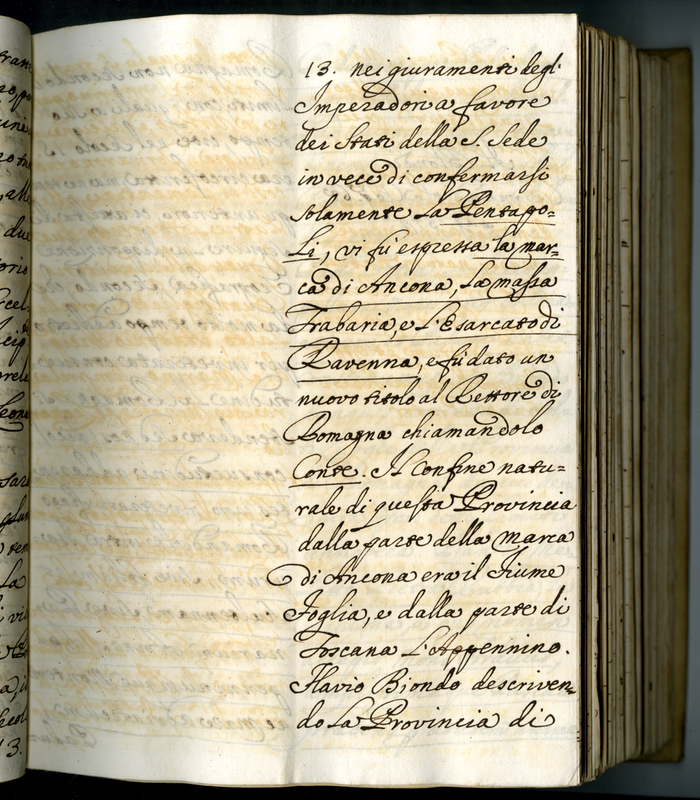 13. nei giuramenti degl'
Imperadori a favore
dei Stati della S. Sede
in vece di confermarsi
solamente La Pentapo=
Li, vi fù espressa la mar=
ca di Ancona, La massa
Trabaria, e L'Esarcato di
Ravenna, e fù dato un
nuovo titolo al Rettore di
Romagna chiamandolo
Conte. Il Confine natu=
rale di questa Provincia
dalla parte della marca
di Ancona era il Fiume
Foglia, e dalla parte di
Toscana L'Appennino.
Flavio Biondo descriven=
do La Provincia di